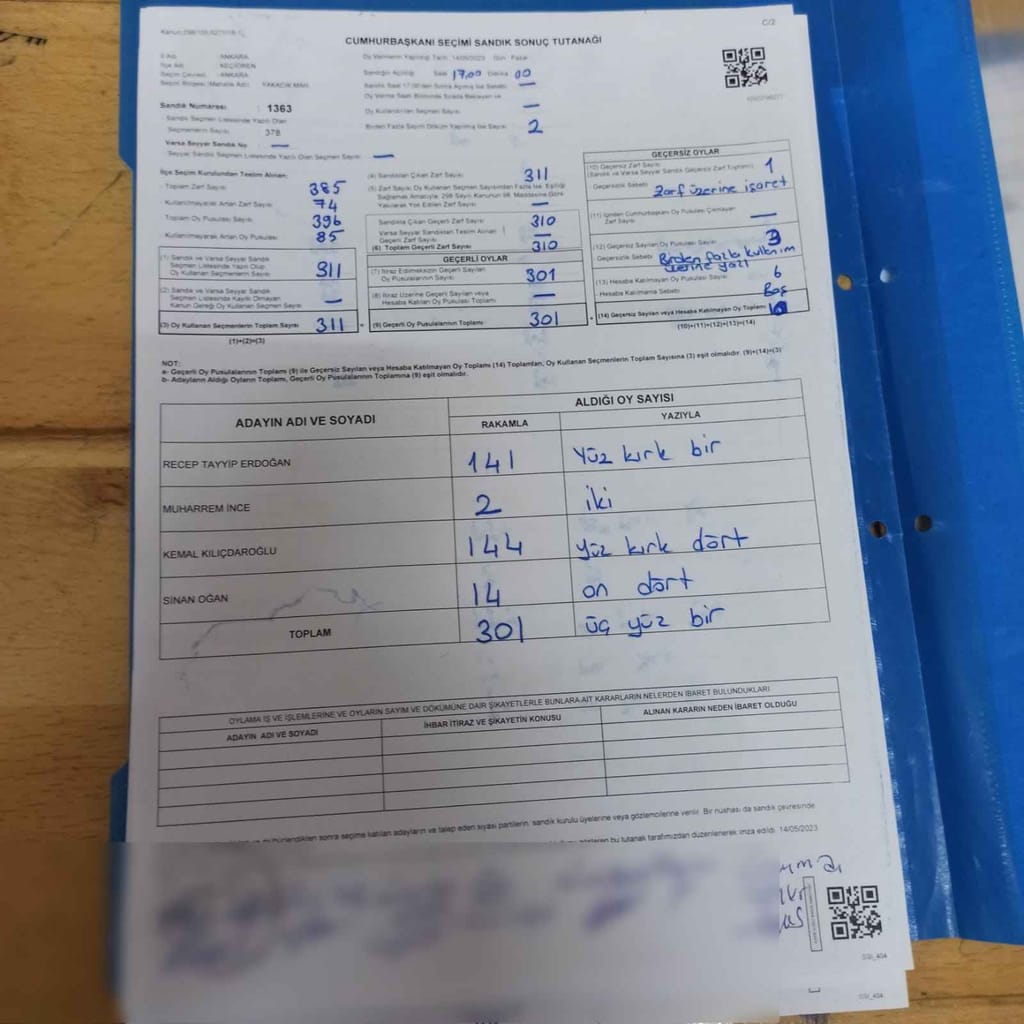 C/2
CUMHURBAŞKANI SEÇİMİ SANDIK SONUÇ TUTANAĞI
İl Adı : ANKARA
İlçe Adı : KEÇİÖREN
Seçim Çevresi : ANKARA
Seçim Bölgesi (Mahalle Adı) : YAKACIK MAH.
Sandık Numarası : 1363
Sandık Seçmen Listesinde Yazılı Olan
Seçmenlerin Sayısı : 378
Varsa Seyyar Sandık No : —
Seyyar Sandık Seçmen Listesinde Yazılı Olan Seçmen Sayısı : —
Oy Vermenin Yapıldığı Tarih: 14/05/2023 Gün: Pazar
Sandığın Açılışı Saat 17.00 Dakika 00
Sandık Saat 17:00'den Sonra Açılmış İse Sebebi: —
Oy Verme Saati Bitiminde Sırada Bekleyen ve
Oy Kullandırılan Seçmen Sayısı —
Birden Fazla Sayım Döküm Yapılmış İse Sayısı 2
İlçe Seçim Kurulundan Teslim Alınan;
Toplam Zarf Sayısı 385
Kullanılmayarak Artan Zarf Sayısı 74
Toplam Oy Pusulası Sayısı 396
Kullanılmayarak Artan Oy Pusulası 85
(1) Sandık ve Varsa Seyyar Sandık
Seçmen Listesinde Yazılı Olup
Oy Kullanan Seçmenlerin Sayısı 311
(2) Sandık ve Varsa Seyyar Sandık
Seçmen Listesinde Kayıtlı Olmayan
Kanun Gereği Oy Kullanan Seçmen Sayısı —
(3) Oy Kullanan Seçmenlerin Toplam Sayısı 311
(1)+(2)=(3)
(4) Sandıktan Çıkan Zarf Sayısı 311
(5) Zarf Sayısı Oy Kullanan Seçmen Sayısından Fazla İse, Eşitliği
Sağlamak Amacıyla, 298 Sayılı Kanunun 98. Maddesine Göre
Yakılarak Yok Edilen Zarf Sayısı —
Sandıkta Çıkan Geçerli Zarf Sayısı 310
Varsa Seyyar Sandıktan Teslim Alınan
Geçerli Zarf Sayısı —
(6) Toplam Geçerli Zarf Sayısı 310
GEÇERLİ OYLAR
(7) İtiraz Edilmeksizin Geçerli Sayılan
Oy Pusulalarının Sayısı 301
(8) İtiraz Üzerine Geçerli Sayılan veya
Hesaba Katılan Oy Pusulası Toplamı —
(9) Geçerli Oy Pusulalarının Toplamı 301
GEÇERSİZ OYLAR
(10) Geçersiz Zarf Sayısı
(Sandık ve Varsa Seyyar Sandık Geçersiz Zarf Toplamı) 1
Geçersizlik Sebebi Zarf üzerine işaret
(11) İçinden Cumhurbaşkanı Oy Pusulası Çıkmayan
Zarf Sayısı —
(12) Geçersiz Sayılan Oy Pusulası Sayısı 3
Geçersizlik Sebebi Birden fazla kullanım
üzerine yazı
(13) Hesaba Katılmayan Oy Pusulası Sayısı 6
Hesaba Katılmama Sebebi Boş
(14) Geçersiz Sayılan veya Hesaba Katılmayan Oy Toplamı 10
(10)+(11)+(12)+(13)=(14)
NOT:
a- Geçerli Oy Pusulalarının Toplamı (9) ile Geçersiz Sayılan veya Hesaba Katılmayan Oy Toplamı (14) Toplamları; Oy Kullanan Seçmenlerin Toplam Sayısına (3) eşit olmalıdır. (9)+(14)=(3)
b- Adayların Aldığı Oyların Toplamı, Geçerli Oy Pusulalarının Toplamına (9) eşit olmalıdır.
ADAYIN ADI VE SOYADI ALDIĞI OY SAYISI
RAKAMLA YAZIYLA
RECEP TAYYİP ERDOĞAN 141 Yüz kırk bir
MUHARREM İNCE 2 iki
KEMAL KILIÇDAROĞLU 144 yüz kırk dört
SİNAN OĞAN 14 on dört
TOPLAM 301 üç yüz bir
OYLAMA İŞ VE İŞLEMLERİNE VE OYLARIN SAYIM VE DÖKÜMÜNE DAİR ŞİKAYETLERLE BUNLARA AİT KARARLARIN NELERDEN İBARET BULUNDUKLARI
ADAYIN ADI VE SOYADI İHBAR İTİRAZ VE ŞİKAYETİN KONUSU ALINAN KARARIN NEDEN İBARET OLDUĞU
sonra seçime katılan adayların ve talep eden siyasi partilerin, sandık kurulu üyelerine veya gözlemcilerine verilir. Bir nüshası da sandık çevresinde
gösteren bu tutanak tarafımızdan düzenlenerek imza edildi. 14/05/2023